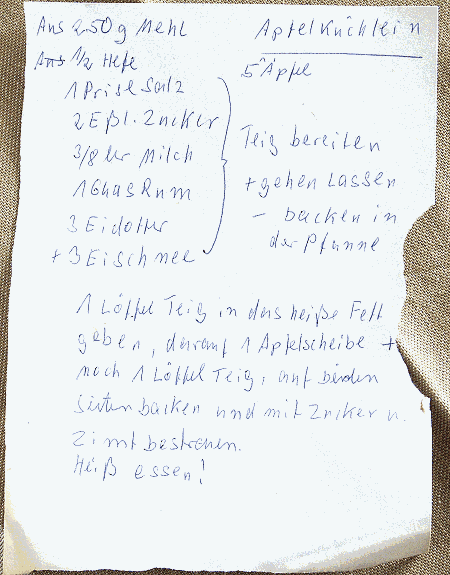 Apfelküchlein
Aus 250 g Mehl
Aus 1/2 Hefe
1 Prise Salz
2 Eßl. Zucker
3/8 ltr Milch
1 Glas Rum
3 Eidotter
+ 3 Eischnee
5 Äpfel
Teig bereiten
+ gehen lassen
– backen in
der Pfanne
1 Löffel Teig in das heiße Fett
geben, darauf 1 Apfelscheibe +
noch 1 Löffel Teig, auf beiden
Seiten backen und mit Zucker u.
Zimt bestreuen.
Heiß essen!